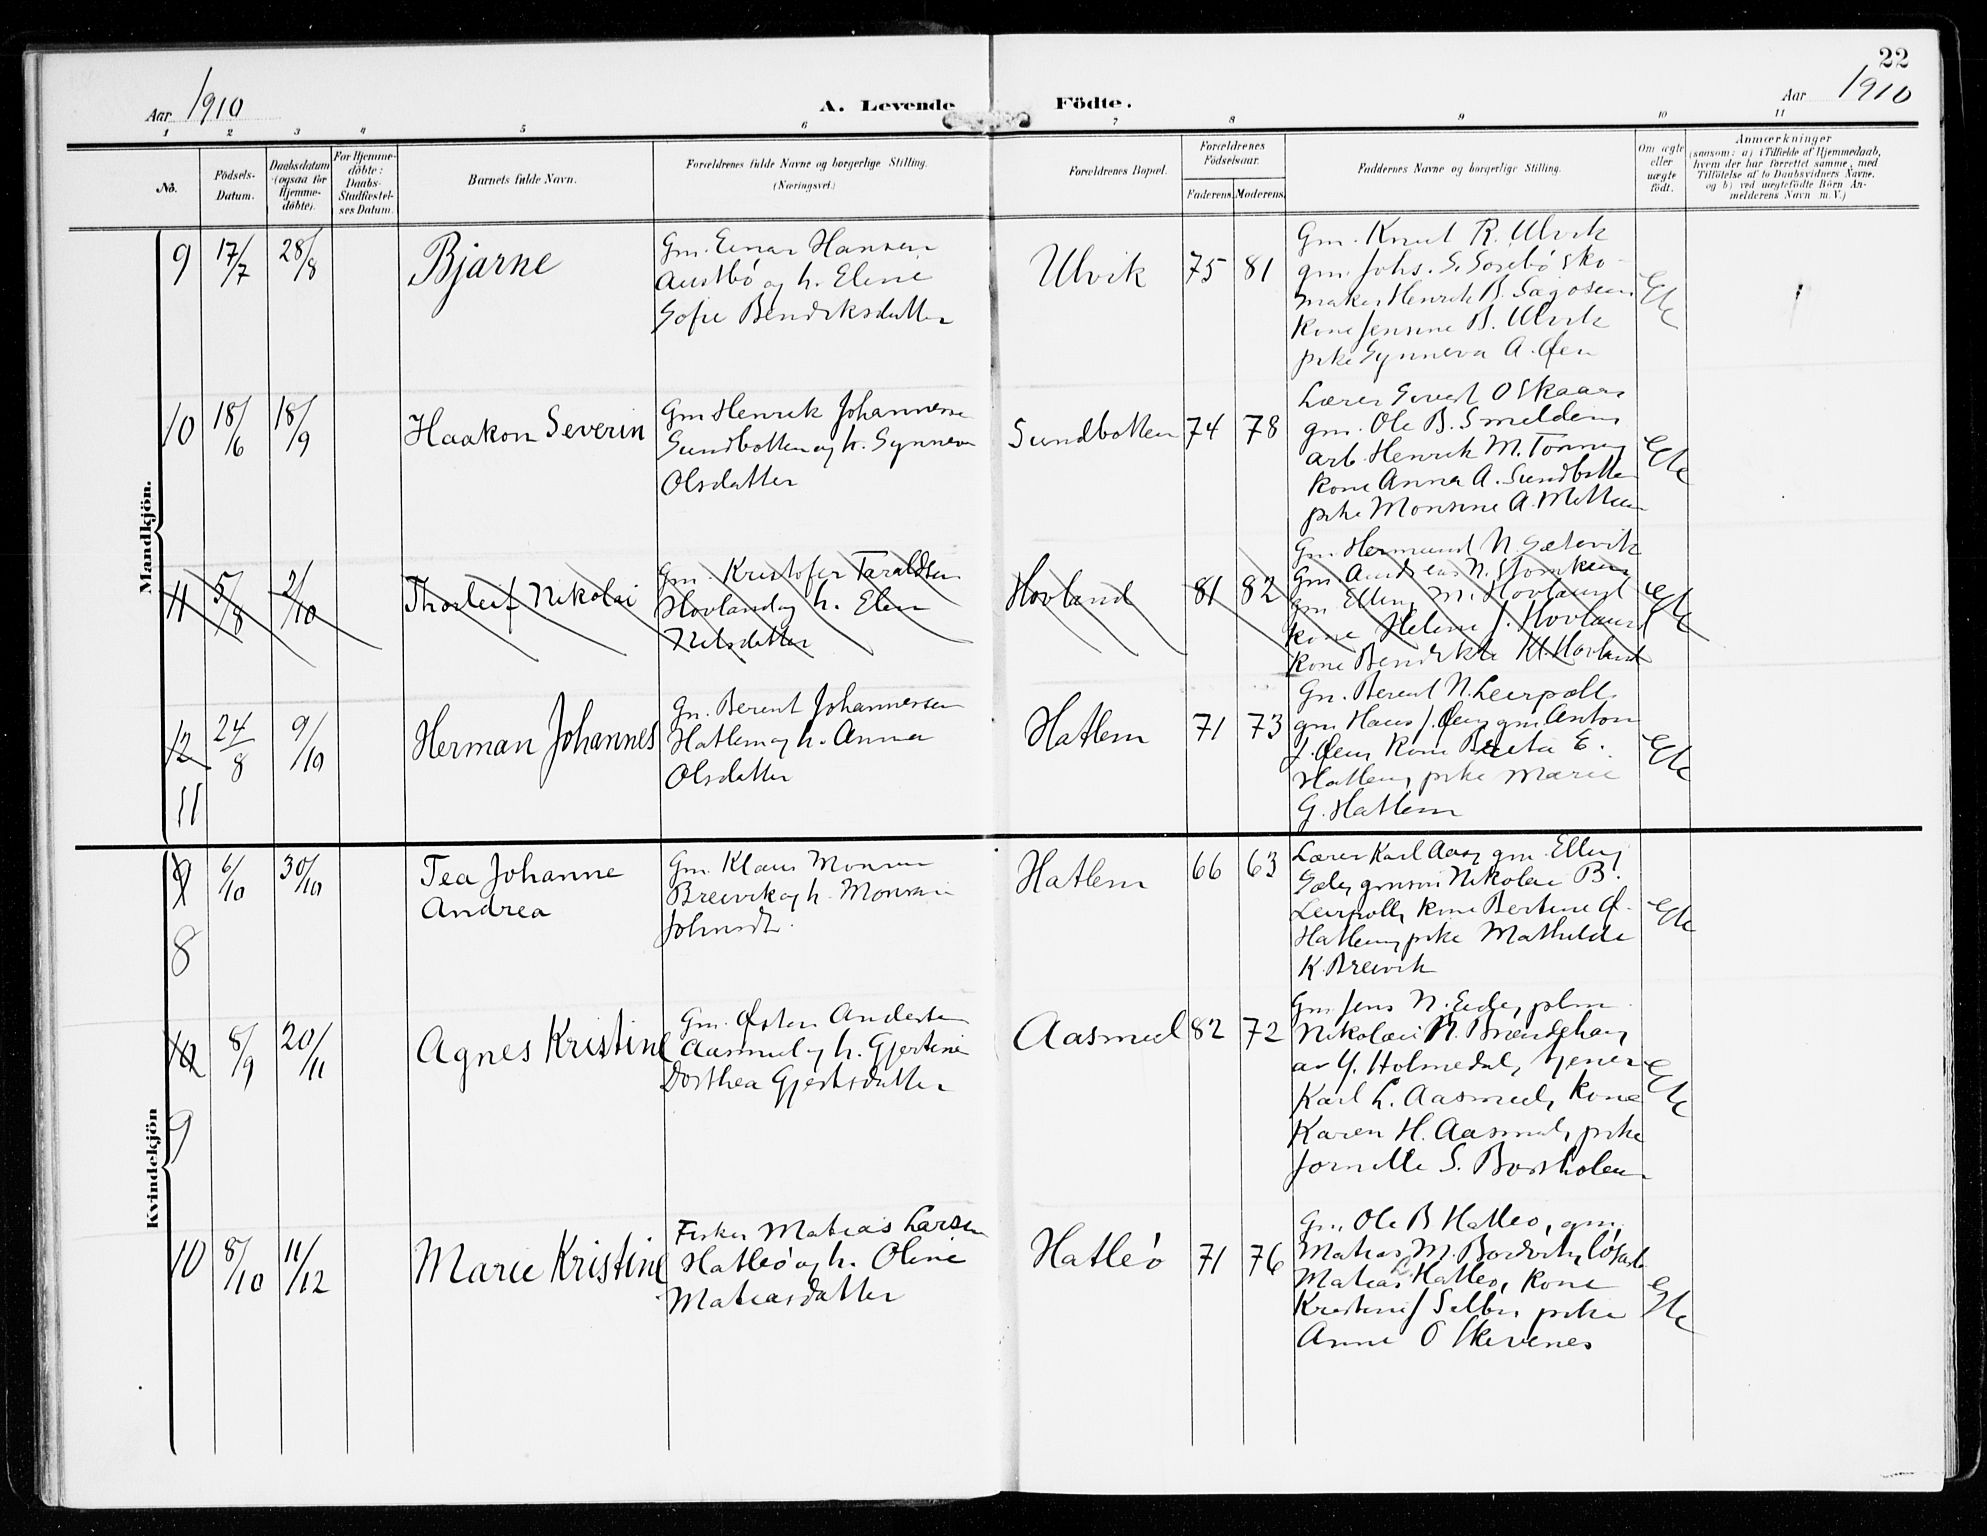 22
Aar 1910
A. Levende Födte.
Aar 1910
1 2 3 4 5 6 7 8 9 10 11
No.
Födsels-
Datum.
Daabsdatum
(ogsaa for
Hjemme-
döbte).
For Hjemme-
döbte:
Daabs-
Stadfæstel-
ses Datum.
Barnets fulde Navn.
Forældrenes fulde Navne og borgerlige Stilling.
(Næringsvei.)
Forældrenes Bopæl.
Forældrenes
Födselsaar.
Faderens.
Moderens.
Faddernes Navne og borgerlige Stilling.
Om ægte
eller
uægte
födt.
Anmærkninger
(saasom: a) i Tilfælde af Hjemmedaab,
hvem der har forrettet samme, med
Tilföielse af to Daabsvidners Navne,
og b) ved uægtefödte Börn An-
melderens Navn m.V.)
Mandkjön.
9 17/7 28/8
Bjarne
Gm. Einar Hansen
Austbö og h. Eline
Sofie Bendiksdatter
Ulvik 75 81
Gm. Knut R. Ulvik
gm. Johs. S. Sörebö sko-
maker Henrik B. Sagosen
kone Jensine B. Ulvik
pike Synneva A. Öen
Egte
10 18/6 18/9
Haakon Severin
Gm Henrik Johannesen
Sundbotten og h. Synneva
Olsdatter
Sundbotten 74 78
Lærer O Skaar
gm. Ole B. Smelden
arb. Henrik M. Tonning
kone Anna A. Sundbotten
pike Monsine A. Metteen
Egte
11 5/8 2/10
Thorleif Nikolai
Gm. Kristofer Taraldsen
Hovland og h. Elen
Nilsdatter
Hovland 81 82
Gm Hermund N. Sætevik
Gm. Andreas N.
gm Elling M. Hovland
kone Helene J. Hovland
kone Bendikte Kl. Hovland
Egte
12 24/8 9/10
11
Herman Johannes
Gm. Berent Johannessen
Hatlem og h. Anna
Olsdatter
Hatlem 71 73
Gm. Berent N. Leirpoll
gm Hans J. Öen, gm Anton
J. Öen, kone Berta E.
Hatlem, pike Marie
G. Hatlem
Egte
Kvindekjön
9 6/10 30/10
8
Tea Johanne
Andrea
Gm. Klaus Monsen
Breivik og h. Monsine
Johnsdt.
Hatlem 66 63
Lærer Karl Aase, gm. Elling
gmsön Nikolai B.
Leirpoll, kone Bertine Ø.
Hatlem, pike Mathilde
K. Breivik
Egte
10 8/9 20/11
9
Agnes Kristine
Gm. Østen Andersen
Aasmul og h. Gjertine
Dorthea Gjertsdatter
Aasmul 82 72
Gm Jens N. Eide, plm
Nikolai N. Brendehaug
av Y. Holmedal, tjener
Karl L. Aasmul, kone
Karen H. Aasmul, pike
Jornelle S. Borsholm
Egte
10 8/10 11/12
Marie Kristine
Fisker Matias Larsen
Hatleö og h. Oline
Matiasdatter
Hatleö 71 76
Gm. Ole B Hatleö, gm.
Matias M. lösarb
Matias L. Hatleö, kone
Kristine J Selbu pike
Anne O Skivenes
Egte